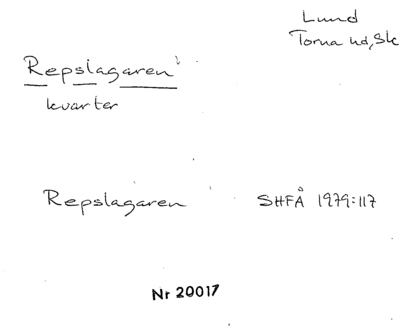 Lund
Torna hd, Sk
Repslagaren
kvarter
Repslagaren SHFÅ 1979:117
Nr 20017